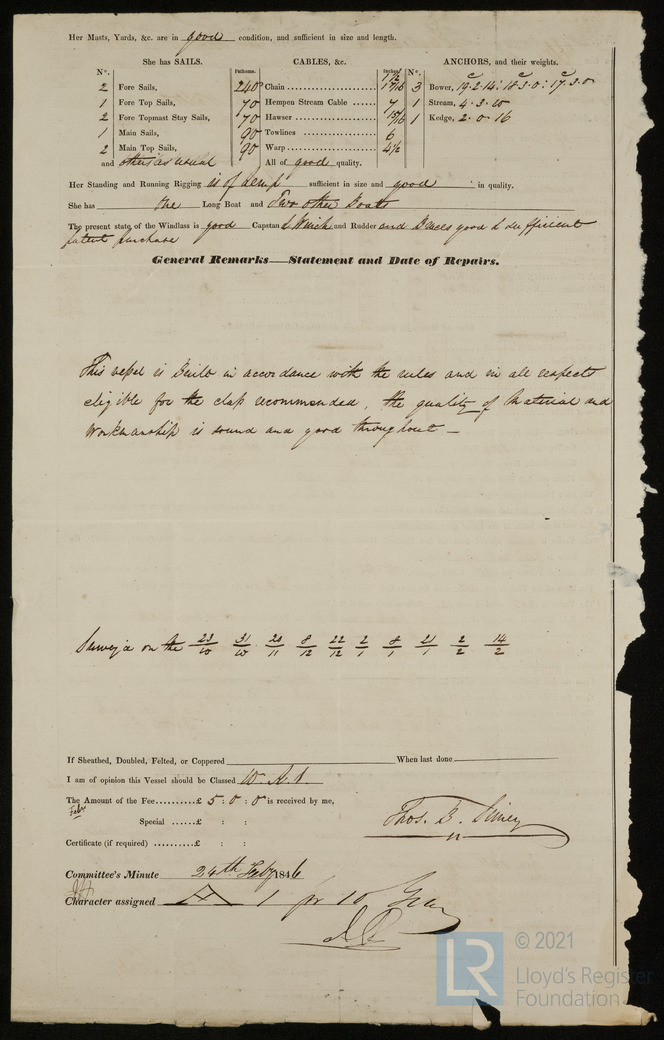 Her Masts, Yards, &c. are in good condition, and sufficient in size and length.
She has SAILS. CABLES, &c. ANCHORS, and their weights.
N°. Fathoms. Inches. N°.
2 Fore Sails, 240 Chain 1 7/16 3 Bower, 19.2.14: 18.3.0: 17.3.0
1 Fore Top Sails, 70 Hempen Stream Cable 7 1 Stream, 4.3.20
2 Fore Topmast Stay Sails, 70 Hawser 15/16 1 Kedge, 2.0.16
1 Main Sails, 90 Towlines 6
2 Main Top Sails, 90 Warp 4½
and others as usual All of good quality.
Her Standing and Running Rigging is of hemp sufficient in size and good in quality.
She has one Long Boat and Two other Boats
The present state of the Windlass is good Capstan & Winch and Rudder and Braces good & sufficient
patent purchase
General Remarks—Statement and Date of Repairs.
This vessel is Built in accordance with the rules and in all respects
eligible for the class recommended, the quality of Material and
Workmanship is sound and good throughout —
Survey'd on the 23/10 31/10 20/11 8/12 22/12 2/1 8/1 21/1 2/2 14/2
If Sheathed, Doubled, Felted, or Coppered When last done
I am of opinion this Vessel should be Classed 10 A.1.
The Amount of the Fee..........£ 5 : 0 : 0 is received by me,
Special ......£ : :
Thos. B. Simey
Certificate (if required) ..........£ : :
Committee's Minute 24th Feby 1846
Character assigned A 1 for 10 Years
© 2021
LR
Lloyd's Register
Foundation